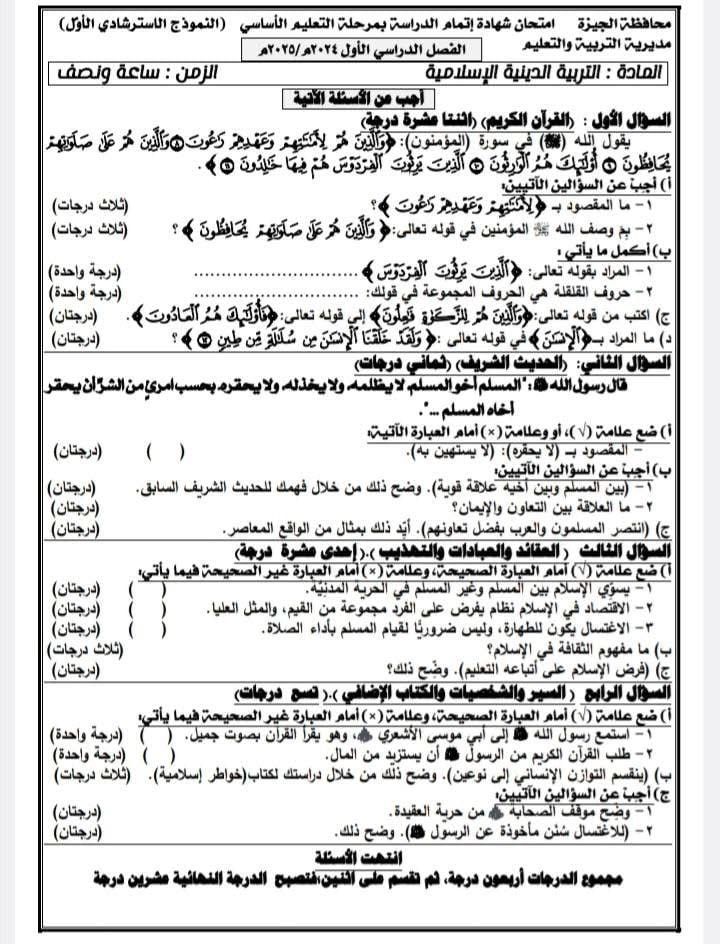 محافظة الجيزة امتحان شهادة إتمام الدراسة بمرحلة التعليم الأساسي (النموذج الاسترشادي الأول)
مديرية التربية والتعليم الفصل الدراسي الأول ٢٠٢٤م/٢٠٢٥م
المادة : التربية الدينية الإسلامية الزمن : ساعة ونصف
أجب عن الأسئلة الآتية
السؤال الأول : (القرآن الكريم) (اثنتا عشرة درجة)
يقول الله (ﷻ) في سورة (المؤمنون): ﴿وَٱلَّذِينَ هُمۡ لِأَمَٰنَٰتِهِمۡ وَعَهۡدِهِمۡ رَٰعُونَ ٨ وَٱلَّذِينَ هُمۡ عَلَىٰ صَلَوَٰتِهِمۡ
يُحَافِظُونَ ٩ أُوْلَٰٓئِكَ هُمُ ٱلۡوَٰرِثُونَ ١٠ ٱلَّذِينَ يَرِثُونَ ٱلۡفِرۡدَوۡسَ هُمۡ فِيهَا خَٰلِدُونَ ١١﴾ .
أ) أجب عن السؤالين الآتيين:
١- ما المقصود بـ ﴿لِأَمَٰنَٰتِهِمۡ وَعَهۡدِهِمۡ رَٰعُونَ﴾؟ (ثلاث درجات)
٢- بم وصف الله ﷻ المؤمنين في قوله تعالى: ﴿وَٱلَّذِينَ هُمۡ عَلَىٰ صَلَوَٰتِهِمۡ يُحَافِظُونَ﴾ ؟ (ثلاث درجات)
ب) أكمل ما يأتي :
١- المراد بقوله تعالى: ﴿ٱلَّذِينَ يَرِثُونَ ٱلۡفِرۡدَوۡسَ﴾ .............................. (درجة واحدة)
٢- حروف القلقلة هي الحروف المجموعة في قولك: .............................. (درجة واحدة)
ج) اكتب من قوله تعالى: ﴿وَٱلَّذِينَ هُمۡ لِلزَّكَوٰةِ فَٰعِلُونَ﴾ إلى قوله تعالى: ﴿فَأُوْلَٰٓئِكَ هُمُ ٱلۡعَادُونَ﴾. (درجتان)
د) ما المراد بـ ﴿ٱلۡإِنسَٰنَ﴾ في قوله تعالى : ﴿وَلَقَدۡ خَلَقۡنَا ٱلۡإِنسَٰنَ مِن سُلَٰلَةٖ مِّن طِينٖ ١٢﴾ ؟ (درجتان)
السؤال الثاني: (الحديث الشريف) (ثماني درجات)
قال رسول الله ﷺ: "المسلم أخو المسلم، لا يظلمه، ولا يخذله، ولا يحقره، بحسب امرئ من الشر أن يحقر
أخاه المسلم ...".
أ) ضع علامة (√)، أو وعلامة (×) أمام العبارة الآتية:
- المقصود بـ (لا يحقره): (لا يستهين به). ( ) (درجتان)
ب) أجب عن السؤالين الآتيين:
١- (بين المسلم وبين أخيه علاقة قوية). وضح ذلك من خلال فهمك للحديث الشريف السابق. (درجتان)
٢- ما العلاقة بين التعاون والإيمان؟ (درجتان)
ج) (انتصر المسلمون والعرب بفضل تعاونهم). أيّد ذلك بمثال من الواقع المعاصر. (درجتان)
السؤال الثالث (العقائد والعبادات والتهذيب ).( إحدى عشرة درجة)
أ) ضع علامة (√) أمام العبارة الصحيحة، وعلامة (×) أمام العبارة غير الصحيحة فيما يأتي:
١- يسوّي الإسلام بين المسلم وغير المسلم في الحرية المدنيّة. ( ) (درجتان)
٢- الاقتصاد في الإسلام نظام يفرض على الفرد مجموعة من القيم، والمثل العليا. ( ) (درجتان)
٣- الاغتسال يكون للطهارة، وليس ضروريًّا لقيام المسلم بأداء الصلاة. ( ) (درجتان)
ب) ما مفهوم الثقافة في الإسلام؟ (ثلاث درجات)
ج) (فرض الإسلام على أتباعه التعليم). وضّح ذلك؟ (درجتان)
السؤال الرابع ( السير والشخصيات والكتاب الإضافي ).( تسع درجات)
أ) ضع علامة (√) أمام العبارة الصحيحة، وعلامة (×) أمام العبارة غير الصحيحة فيما يأتي:
١- استمع رسول الله ﷺ إلى أبي موسى الأشعري ﷺ، وهو يقرأ القرآن بصوت جميل. ( ) (درجة واحدة)
٢- طلب القرآن الكريم من الرسول ﷺ أن يستزيد من المال. ( ) (درجة واحدة)
ب) (ينقسم التوازن الإنساني إلى نوعين). وضح ذلك من خلال دراستك لكتاب(خواطر إسلامية). (ثلاث درجات)
ج) أجب عن السؤالين الآتيين:
١- وضح موقف الصحابة من حرية العقيدة. (درجتان)
٢- (للاغتسال سُنن مأخوذة عن الرسول ﷺ). وضح ذلك. (درجتان)
انتهت الأسئلة
مجموع الدرجات أربعون درجة، ثم تقسم على اثنين،فتصبح الدرجة النهائية عشرين درجة